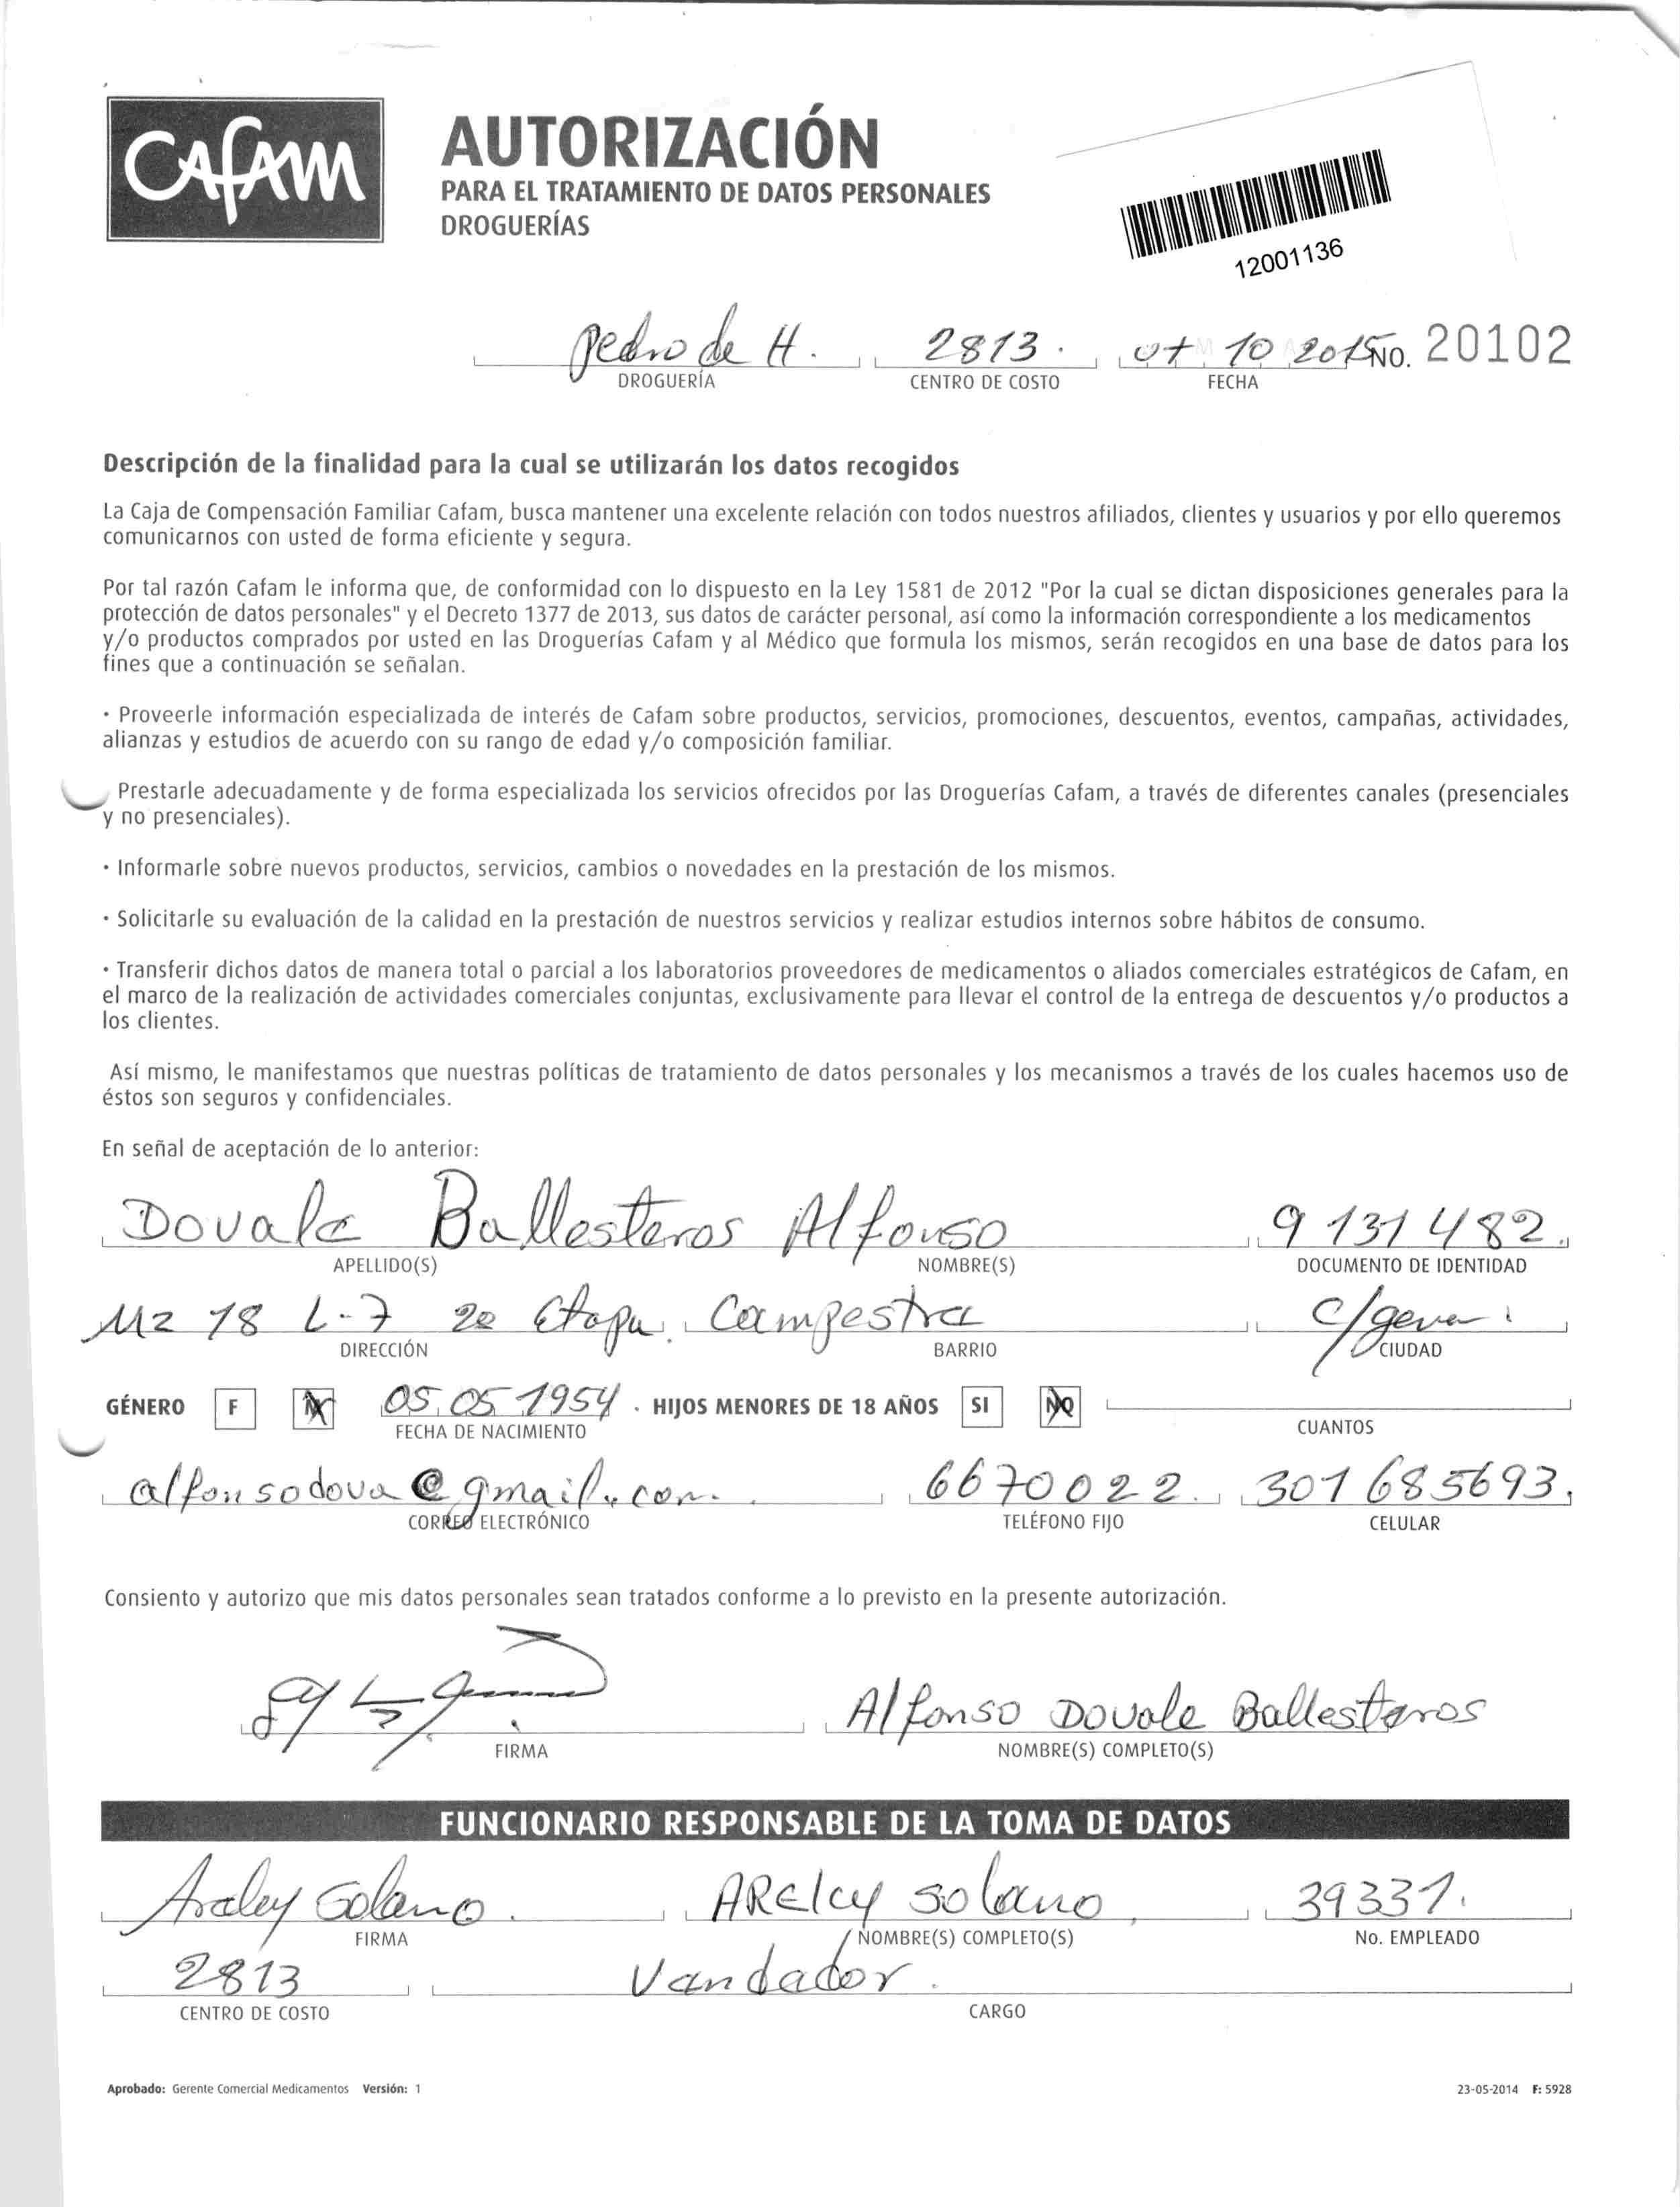 CAFAM
AUTORIZACIÓN
PARA EL TRATAMIENTO DE DATOS PERSONALES
DROGUERÍAS
12001136
Pedro de H. 2813. 07 10 2015 NO. 20102
DROGUERÍA CENTRO DE COSTO FECHA
Descripción de la finalidad para la cual se utilizarán los datos recogidos
La Caja de Compensación Familiar Cafam, busca mantener una excelente relación con todos nuestros afiliados, clientes y usuarios y por ello queremos
comunicarnos con usted de forma eficiente y segura.
Por tal razón Cafam le informa que, de conformidad con lo dispuesto en la Ley 1581 de 2012 "Por la cual se dictan disposiciones generales para la
protección de datos personales" y el Decreto 1377 de 2013, sus datos de carácter personal, así como la información correspondiente a los medicamentos
y/o productos comprados por usted en las Droguerías Cafam y al Médico que formula los mismos, serán recogidos en una base de datos para los
fines que a continuación se señalan.
• Proveerle información especializada de interés de Cafam sobre productos, servicios, promociones, descuentos, eventos, campañas, actividades,
alianzas y estudios de acuerdo con su rango de edad y/o composición familiar.
Prestarle adecuadamente y de forma especializada los servicios ofrecidos por las Droguerías Cafam, a través de diferentes canales (presenciales
y no presenciales).
• Informarle sobre nuevos productos, servicios, cambios o novedades en la prestación de los mismos.
• Solicitarle su evaluación de la calidad en la prestación de nuestros servicios y realizar estudios internos sobre hábitos de consumo.
• Transferir dichos datos de manera total o parcial a los laboratorios proveedores de medicamentos o aliados comerciales estratégicos de Cafam, en
el marco de la realización de actividades comerciales conjuntas, exclusivamente para llevar el control de la entrega de descuentos y/o productos a
los clientes.
Así mismo, le manifestamos que nuestras políticas de tratamiento de datos personales y los mecanismos a través de los cuales hacemos uso de
éstos son seguros y confidenciales.
En señal de aceptación de lo anterior:
Dovale Ballesteros Alfonso 9 131 482.
APELLIDO(S) NOMBRE(S) DOCUMENTO DE IDENTIDAD
Mz 18 L-7 2e Etapa. Campestre C/gena.
DIRECCIÓN BARRIO CIUDAD
GÉNERO F M 05 05 1954. HIJOS MENORES DE 18 AÑOS SI NO
FECHA DE NACIMIENTO CUANTOS
alfonsodova@gmail.com. 6670022. 301 685693.
CORREO ELECTRÓNICO TELÉFONO FIJO CELULAR
Consiento y autorizo que mis datos personales sean tratados conforme a lo previsto en la presente autorización.
Alfonso Dovale Ballesteros
FIRMA NOMBRE(S) COMPLETO(S)
FUNCIONARIO RESPONSABLE DE LA TOMA DE DATOS
Areley Solano. ARElcy Solano. 39331.
FIRMA NOMBRE(S) COMPLETO(S) No. EMPLEADO
2813 Vendedor.
CENTRO DE COSTO CARGO
Aprobado: Gerente Comercial Medicamentos Versión: 1 23-05-2014 F: 5928